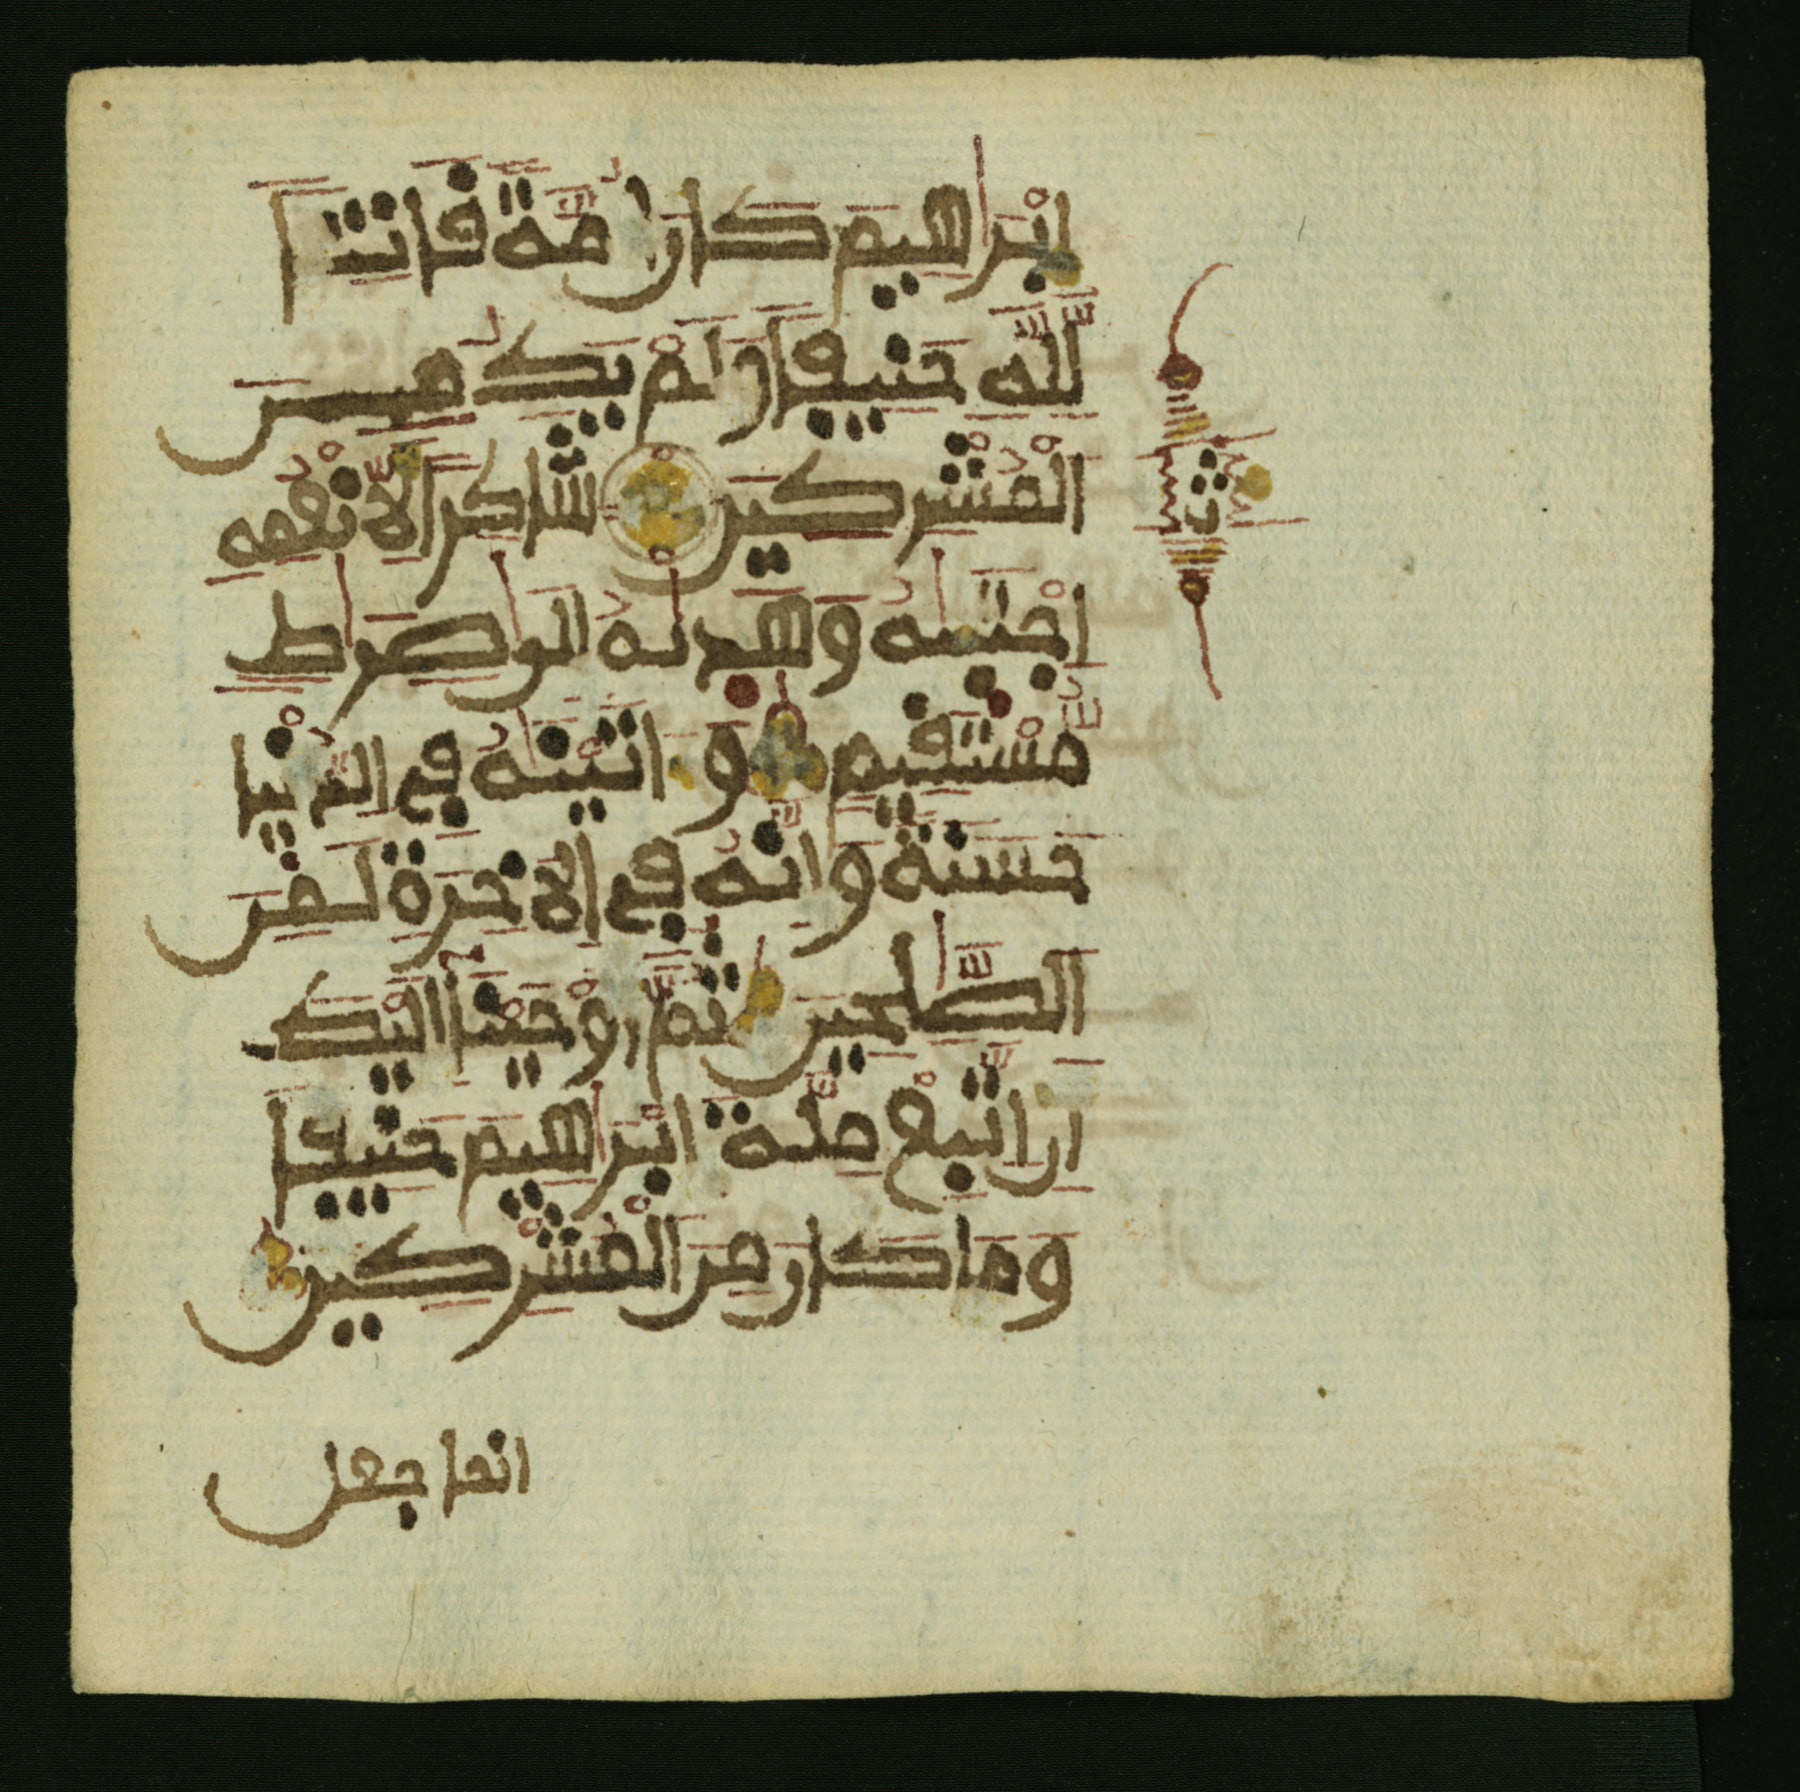 ابْرَٰهِيمَ كَانَ أُمَّةً قَانِتًا
لِّلَّهِ حَنِيفًا وَلَمْ يَكُ مِنَ
الْمُشْرِكِينَ شَاكِرًا لِّأَنْعُمِهِ
اجْتَبَىٰهُ وَهَدَىٰهُ إِلَىٰ صِرَٰطٍ
مُّسْتَقِيمٍ وَءَاتَيْنَٰهُ فِي الدُّنْيَا
حَسَنَةً وَإِنَّهُ فِي الَاخِرَةِ لَمِنَ
الصَّٰلِحِينَ ثُمَّ أَوْحَيْنَآ إِلَيْكَ
أَنِ اتَّبِعْ مِلَّةَ إِبْرَٰهِيمَ حَنِيفًا
وَمَا كَانَ مِنَ الْمُشْرِكِينَ
انما جعل